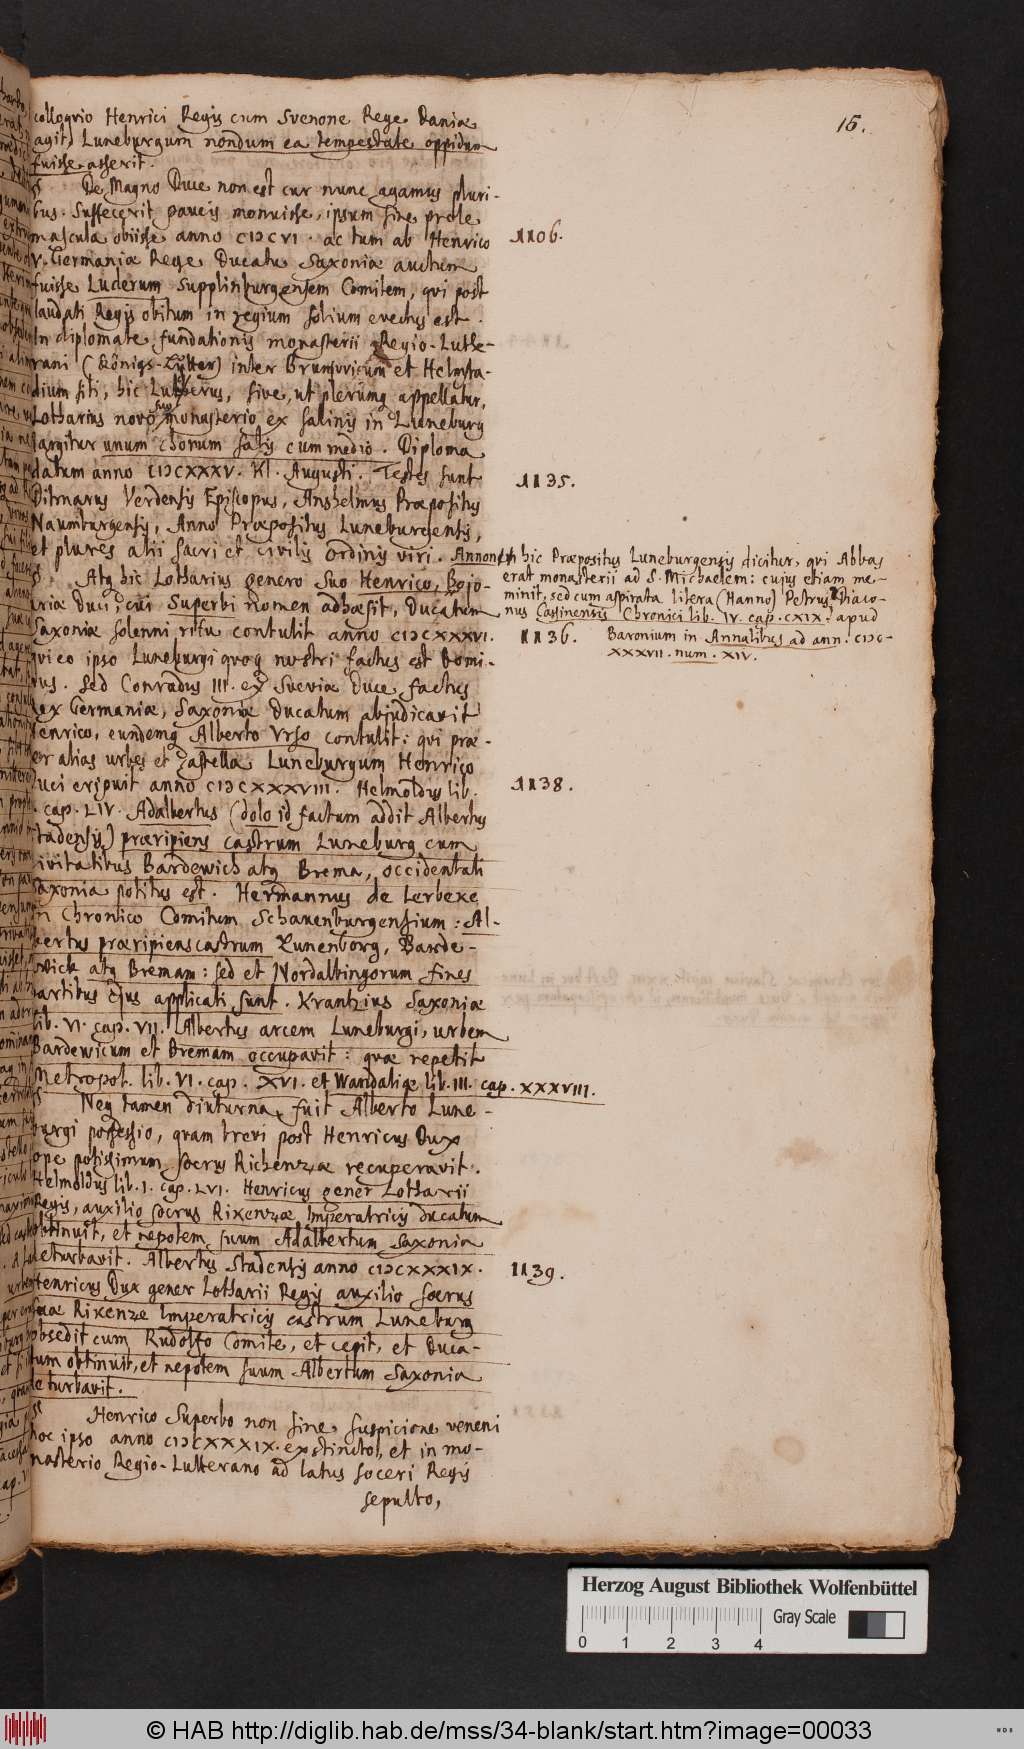 15.
colloqvio Henrici Regis cum Svenone Rege Daniæ
agit) Luneburgum nondum ea tempestate oppidum
fuisse asserit.
De Magno Duce non est cur nunc agamus pluri-
bus. Suffecerit paucis monuisse, ipsum sine prole
mascula obiisse anno CIƆCVI. ac tum ab Henrico
V. Germaniæ Rege Ducatu Saxoniæ auctum
fuisse Luderum Supplinburgensem Comitem, qvi post
laudati Regis obitum in regium solium evectus est.
In diplomate fundationis monasterii Regio-Lutte-
rani (Königs-Lutter) inter Brunsvicum et Helmsta-
dium siti, hic Lutherus, sive, ut plerumq appellatur,
Lotharius novo suo monasterio ex salinis in Luneburg
largitur unum chorum salis cum medio. Diploma
datum anno CIƆCXXXV. Kl. Augusti. Testes sunt
Ditmarus Verdensis Episcopus, Anshelmus Præpositus
Naumburgensis, Anno Præpositus Luneburgensis,
et plures alii sacri et civilis ordinis viri. Annon
Atq hic Lotharius genero suo Henrico, Bojo-
ariæ Duci, cui Superbi nomen adhæsit, Ducatum
Saxoniæ solenni ritu contulit anno CIƆCXXXVI.
qvi eo ipso Luneburgi qvoq nostri factus est Domi-
nus. Sed Conradus III. ex Sueviæ Duce factus
Rex Germaniæ, Saxoniæ Ducatum abjudicavit
Henrico, eundemq Alberto Urso contulit: qvi præ-
ter alias urbes et castella Luneburgum Henrico
Duci eripuit anno CIƆCXXXVIII. Helmoldus lib.
I. cap. LIV. Adalbertus (dolo id factum addit Albertus
Stadensis) præripiens castrum Luneburg cum
civitatibus Bardewich atq Brema, occidentali
Saxonia potitus est. Hermannus de Lerbeke
in Chronico Comitum Schauenburgensium: Al-
bertus præripiens castrum Lunenborg, Barde-
wick atq Bremam: sed et Nordalbingorum fines
partibus ejus applicati sunt. Krantzius Saxoniæ
lib. VI. cap. VII. Albertus arcem Luneburgi, urbem
Bardewicum et Bremam occupavit: qvæ repetit
Metropol. lib. VI. cap. XVI. et Wandaliæ lib. III. cap. XXXVIII.
Neq tamen diuturna fuit Alberto Lune-
burgi possessio, qvam brevi post Henricus Dux
ope potissimum socrus Richenzæ recuperavit.
Helmoldus lib. I. cap. LVI. Henricus gener Lotharii
Regis, auxilio socrus Rixenzæ Imperatricis ducatum
obtinuit, et nepotem suum Adalbertum Saxonia
deturbavit. Albertus Stadensis anno CIƆCXXXIX.
Henricus Dux gener Lotharii Regis auxilio socrus
suæ Rixenze Imperatricis castrum Luneburg
obsedit cum Rudolfo Comite, et cepit, et Duca-
tum obtinuit, et nepotem suum Albertum Saxonia
deturbavit.
Henrico Superbo non sine suspicione veneni
hoc ipso anno CIƆCXXXIX. exstincto, et in mo-
nasterio Regio-Lutterano ad latus soceri Regis
sepulto,
1106.
1135.
hic Præpositus Luneburgensis dicitur, qvi Abbas
erat monasterii ad S. Michaelem: cujus etiam me-
minit, sed cum aspirata litera (Hanno) Petrus Diaco-
nus Cassinensis Chronici lib. IV. cap. CXIX. apud
Baronium in Annalibus ad ann. CIƆC-
XXXVII. num. XIV.
1136.
1138.
1139.
Herzog August Bibliothek Wolfenbüttel
0 1 2 3 4
Gray Scale
© HAB http://diglib.hab.de/mss/34-blank/start.htm?image=00033